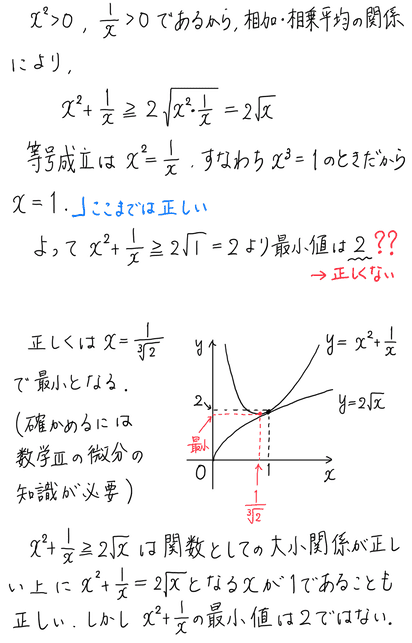 x²>0, 1/x>0 であるから, 相加・相乗平均の関係
により,
x²+1/x ≧ 2√(x²・1/x) = 2√x
等号成立は x²=1/x, すなわち x³=1のときだから
x=1. 」ここまでは正しい
よって x²+1/x ≧ 2√1 = 2 より最小値は 2 ??
→ 正しくない
正しくは x=1/∛2
で最小となる.
(確かめるには
数学Ⅲの微分の
知識が必要)
y
y=x²+1/x
2
y=2√x
最小
O
1
x
1/∛2
x²+1/x≧2√x は関数としての大小関係が正し
い上に x²+1/x=2√xとなるxが1であることも
正しい. しかし x²+1/xの最小値は2ではない.